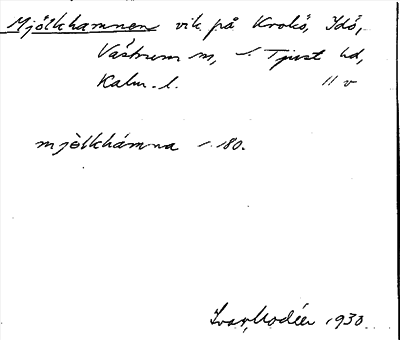 Mjölkhamnen vik på Krokö, Idö,
Västrum sn, S. Tjust hd,
Kalm. l. 11 v
mjèlkhámna s. 180.
Ivar Modéer 1930